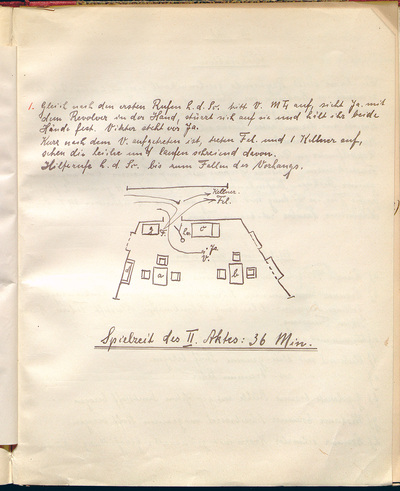 1. Gleich nach den ersten Rufen h. d. Sc. tritt V. M4 auf, sieht Ja. mit
dem Revolver in der Hand, stürzt sich auf sie und hält ihr beide
Hände fest. Viktor steht vor Ja.
Kurz nach dem V. aufgetreten ist, treten Frl. und 1 Kellner auf,
sehen die Leiche und laufen schreiend davon.
Hilferufe h. d. Sc. bis zum Fallen des Vorhangs.
Kellner.
Frl.
g
F.
c
Ja
V.
d
a
b
Spielzeit des II. Aktes: 36 Min.